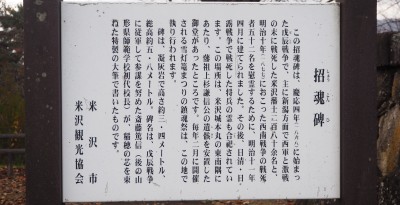 招魂碑
しょうこんひ
この招魂碑は、慶応四年(一八六八)に始まっ
た戊辰戦争で、主に新潟方面で西軍と激戦
の末に戦死した米沢藩士二百八十余名と、
明治十年(一八七七)におこった西南戦争の戦死
者五十二名を慰霊するために、明治十一年
四月に建てられました。その後、日清・日
露戦争で戦死した将兵の霊も合祀されてい
ます。この場所は、米沢城本丸の東南隅に
あたり、藩祖上杉謙信公の遺骸を安置した
御堂があったところです。毎年二月に開催
される雪灯篭まつりの鎮魂祭は、この地で
執り行われます。
碑は、凝灰岩で高さ約三・四メートル、
総高約五・八メートル、碑名は、戊辰戦争
に従軍して参謀を努めた斎藤篤信(後の山
形県師範学校初代校長)が、稲穂の芯を束
ねた特製の大筆で書いたものです。
米沢市
米沢観光協会